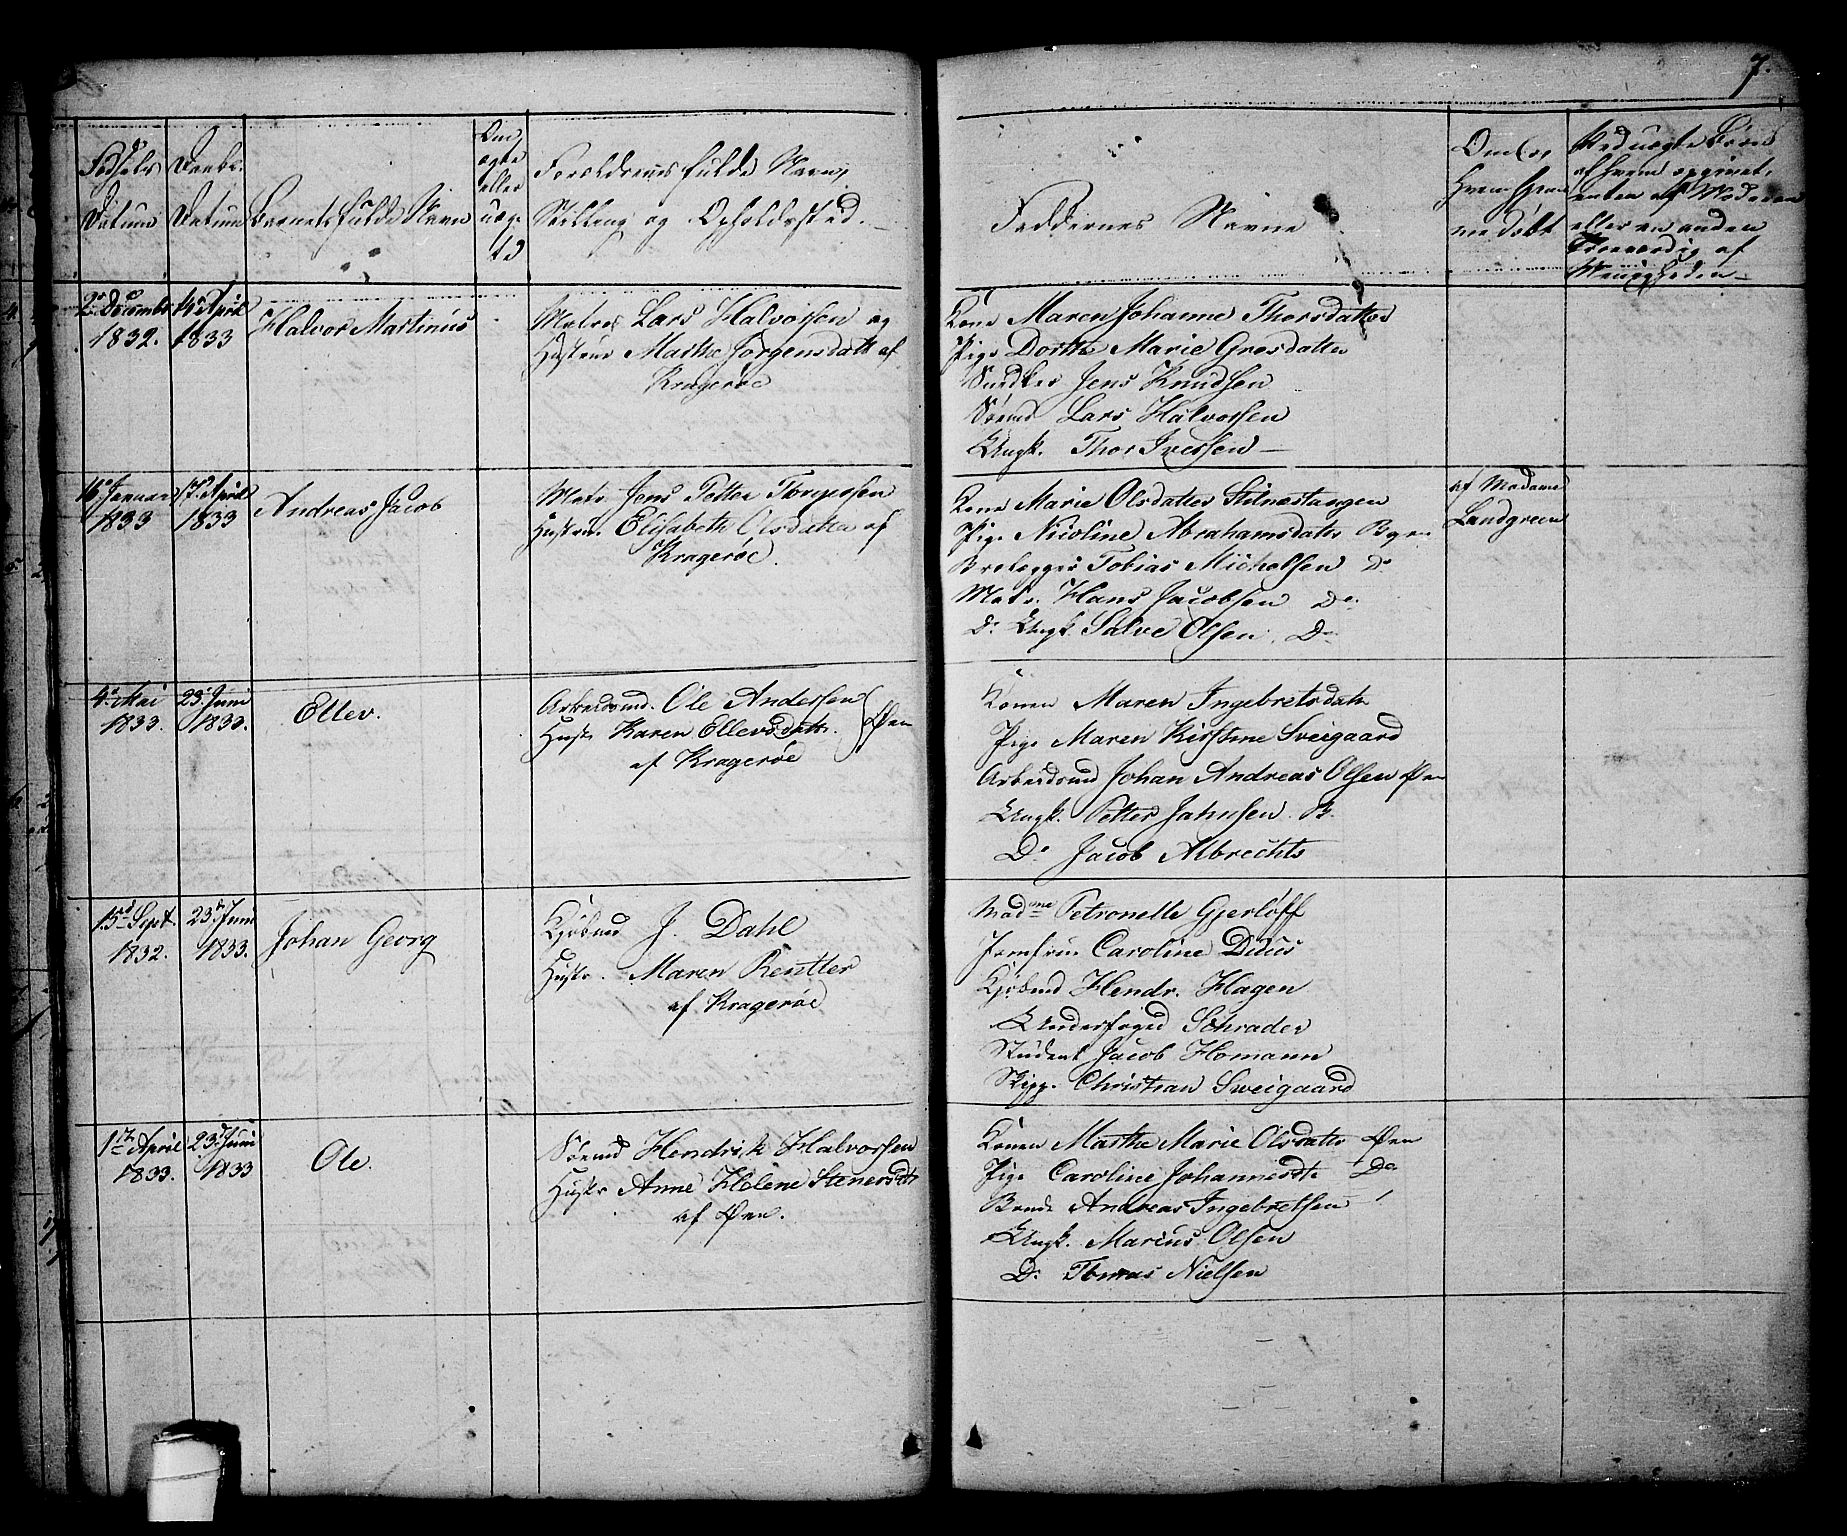 7.
Fødsels Datum
Daabs Datum
Barnets fulde Navn
Om ægte eller uægte
Forældrenes fulde Navn,
Stilling og Opholdsstæd.
Faddernes Navne
Om og hvem hjemmedøbt
Ved uægte Børn
af hvem opgivet,
enten af Moderen
eller en anden
Troeværdig af
Menigheden
2 Decembr 1832.
14 April 1833
Halvor Martinus
Matros Lars Halvorsen og
Hustrue Marthe Jørgensdatt af
Kragerøe
Kone Maren Johanne Thorsdatter
Pige Dorthe Marie Gresdatter
Snedker Jens Knudsen
Sømd Lars Halvorsen
Ungk. Thor Iversen
16 Januar 1833
17 April 1833
Andreas Jacob
Matr. Jens Petter Torgersen
Hustru Elisabeth Olsdatter af
Kragerøe.
Kone Marie Olsdatter Stilnestangen
Pige Nicoline Abrahamsdatter Byen
Brolegger Tobias Michelsen Do
Matr. Hans Jacobsen Do
Do Ungk. Salve Olsen. Do
af Madame
Landgreen
4 Mai 1833.
23 Juni 1833.
Ellev.
Arbeidsmd. Ole Andersen
Hustr Karen Ellevsdattr. Øen
af Kragerøe
Konen Maren Ingebretsdatr
Pige Maren Kirstine Sveigaard
Arbeidsmd Johan Andreas Olsen Øen
Ungk. Petter Jahnsen B.
Do Jacob Albrechts
15 Sept. 1832.
23d Juni 1833.
Johan Georg
Kjøbmd J. Dahl
Hustr. Maren Rentler
af Kragerøe
Madme Petronelle Gjerløff
Jomfrue Caroline Duus
Kjøbmd Hendr. Hagen
Underfoged Schrader
Student Jacob Homann
Skipp. Christian Sweigaard
1te April 1833.
23d Juni 1833
Ole.
Sømd Hendrik Halvorsen
Hustr Anne Helene Stenersdtr
af Øen.
Konen Marthe Marie Olsdatter Øen
Pige Caroline Johannesdtr Do
Bonde Andreas Ingebretsen
Ungk. Marius Olsen
Do Tomas Nielsen